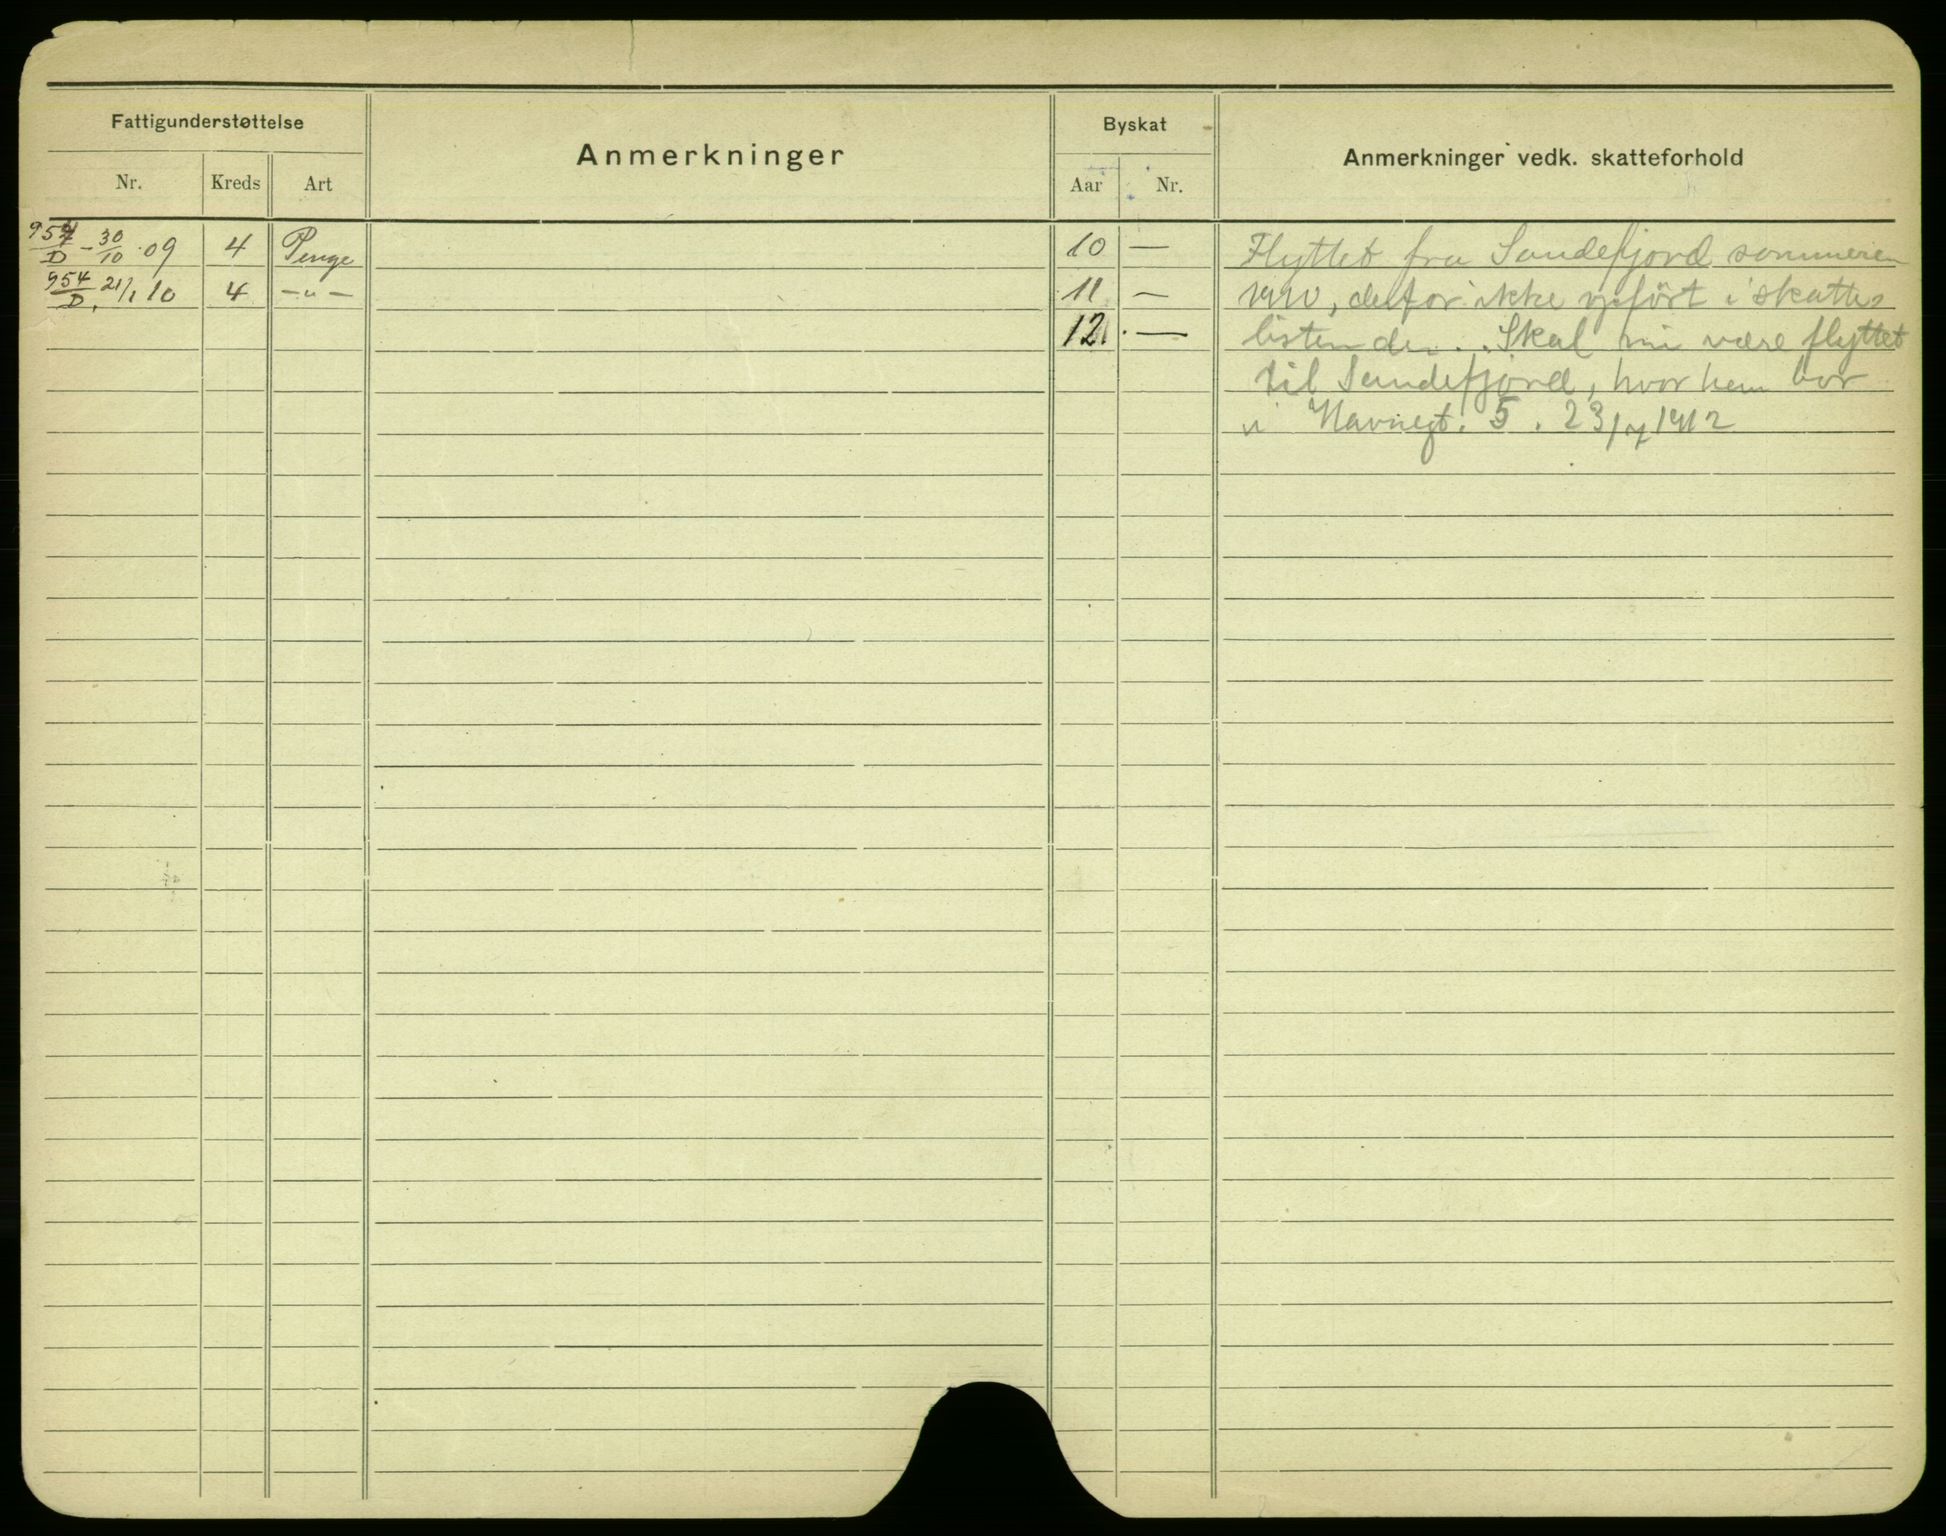 Fattigunderstøttelse
Anmerkninger
Byskat
Anmerkninger vedk. skatteforhold
Nr. Kreds Art
Aar Nr.
954/D - 30/10 09 4 Penge
10 — Flyttet fra Sandefjord sommeren
954/D, 21/1 10 4 -"-
11 — 1910, derfor ikke opført i skatte-
12. — listen der. Skal nu være flyttet
til Sandefjord, hvor hun bor
i Havnegt. 5. 23/7 1912